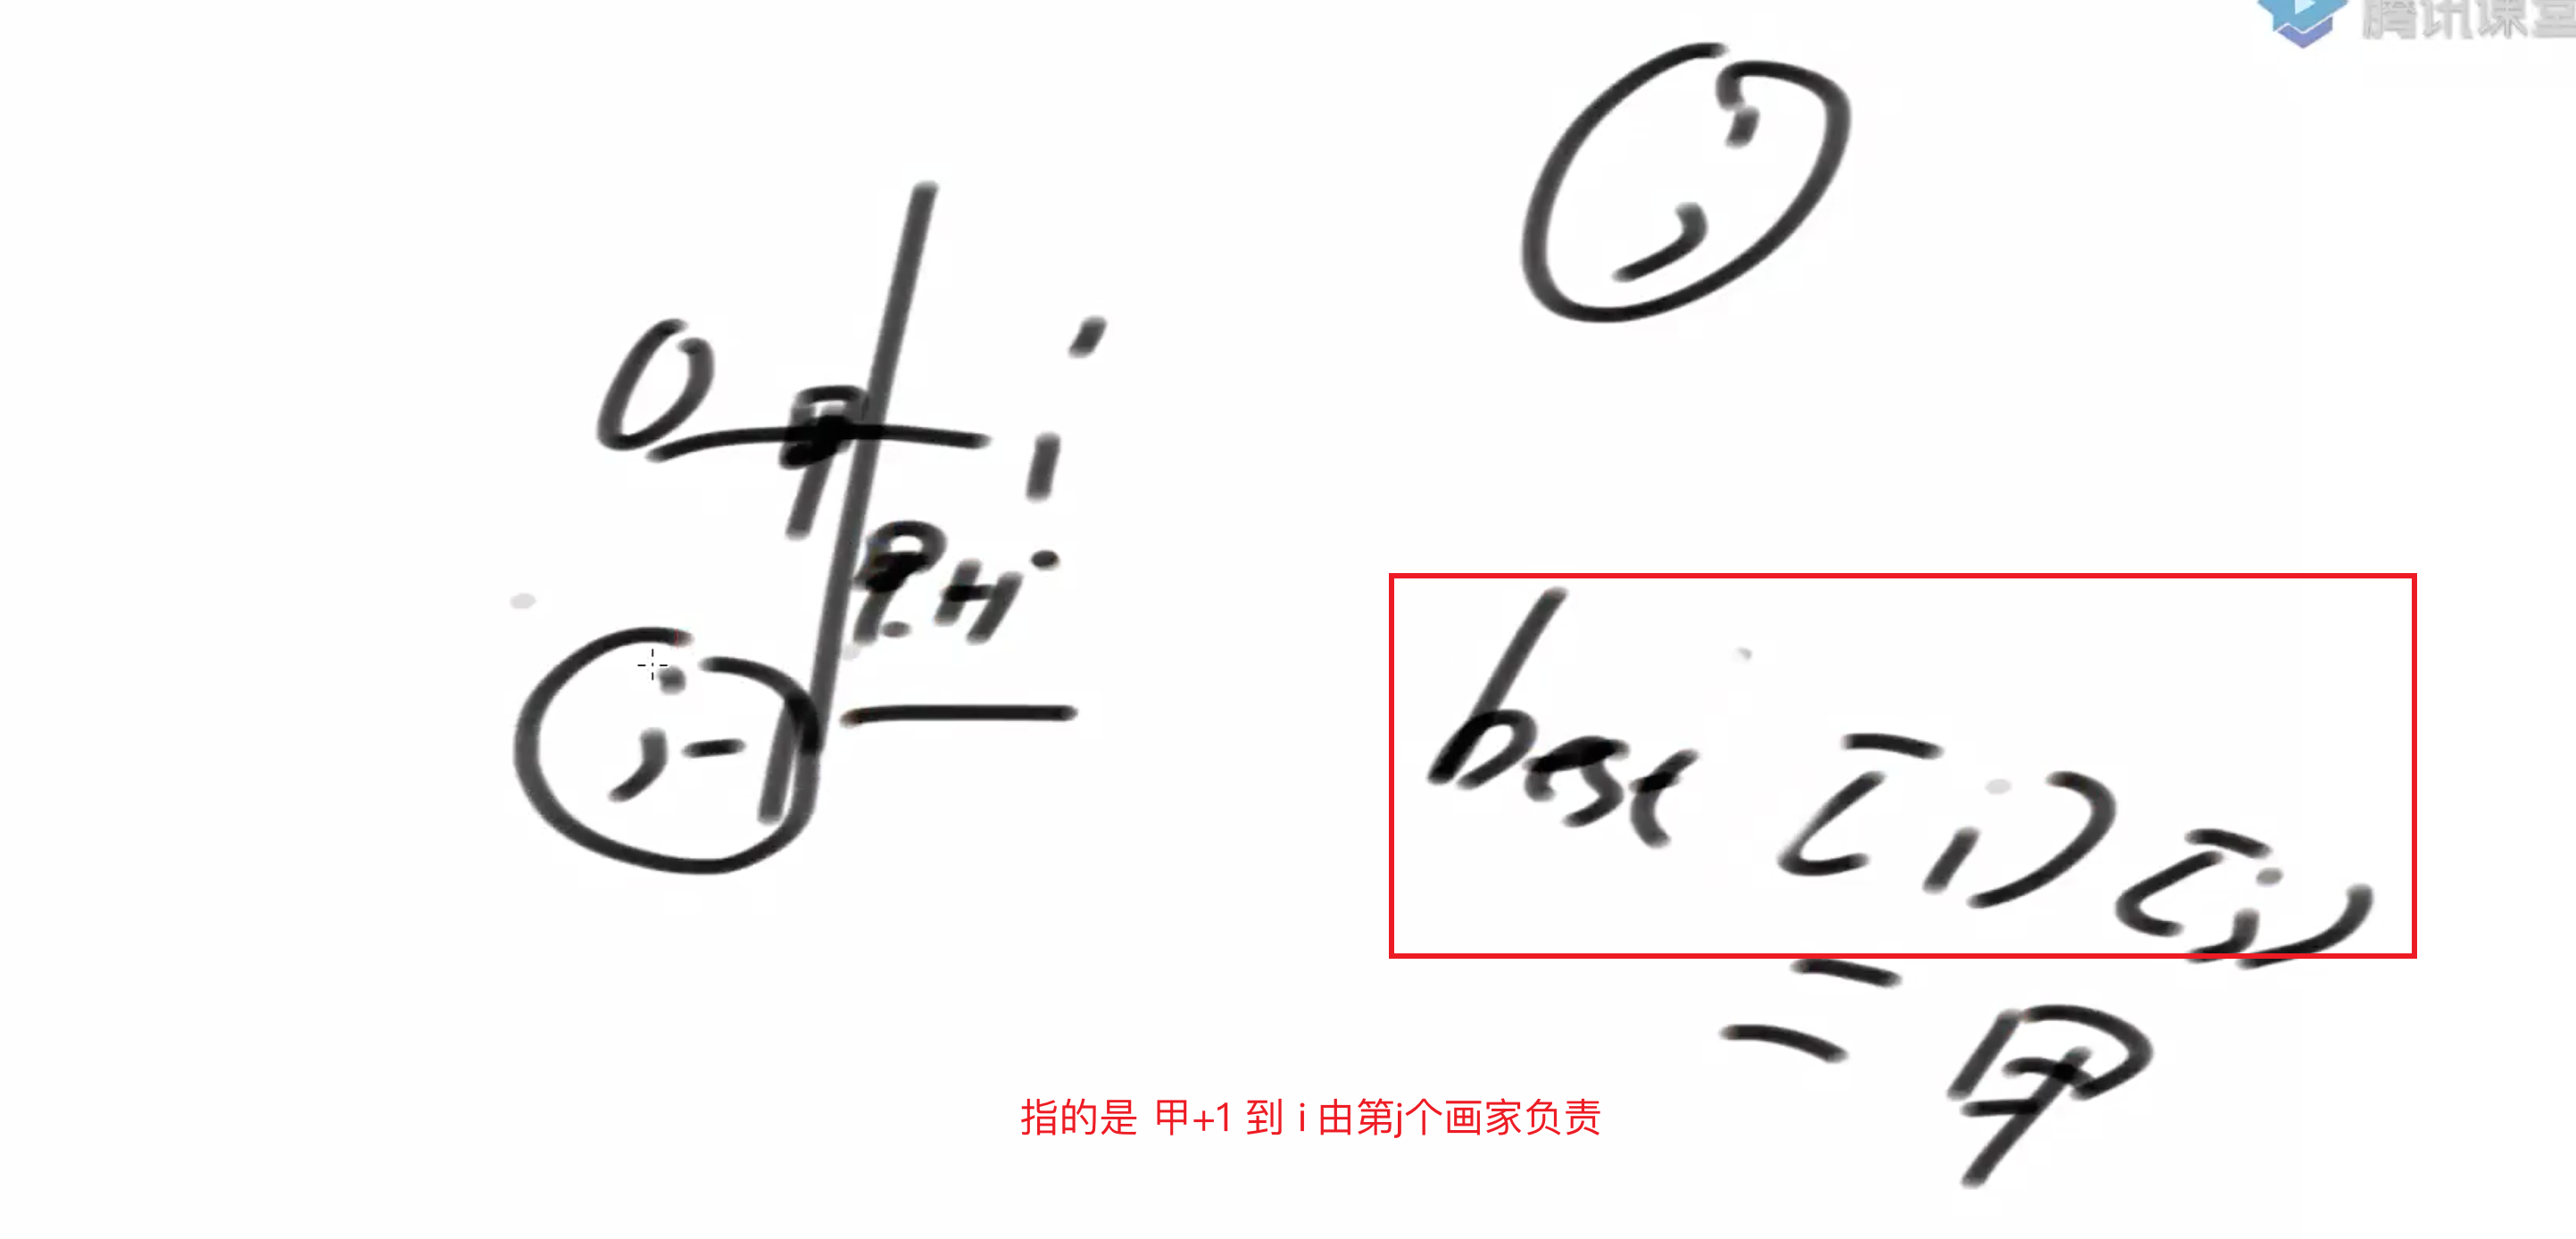 腾讯课堂
i
j
0 甲 i
甲+1
j-1
best [i][j]
= 甲
指的是 甲+1 到 i 由第j个画家负责